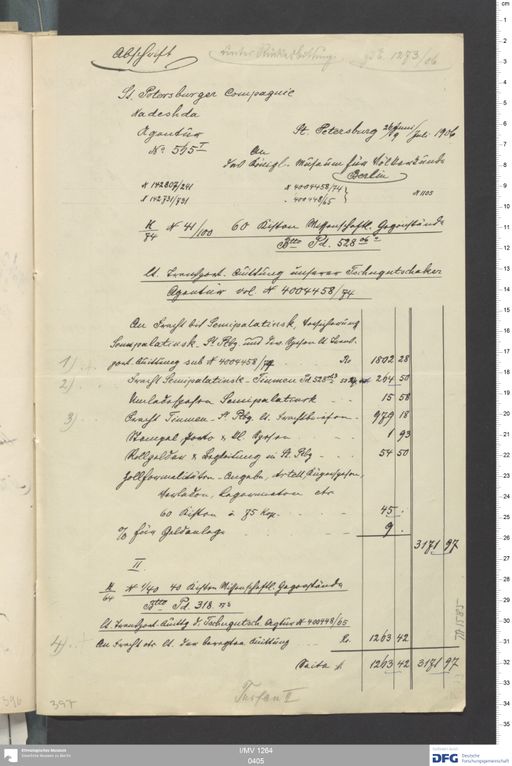 Abschrift
unter Rückerbittung
1273/06
St. Petersburger Compagnie
Nadeshda
Agentur
St. Petersburg 26 Juni/9 Juli 1906
No 565 I
An
das Königl. Museum für Völkerkunde
Berlin
N 142807/241 N 4004458/74
N 142731/731 " 400448/65 N 1105
K/74 N 41/100 60 Kisten Wissenschaftl. Gegenstände
Btto Pd. 528
lt. Transport-Quittung unserer Tschugutschaker
Agentur vol. N 4004458/74
An Fracht bis Semipalatinsk, Versicherung
Semipalatinsk-St. Pbg und div. Spesen lt. Trans-
1) port-Quittung sub N 4004458/74 Ro 1802 28
2) Fracht Semipalatinsk-Tiumen 264 50
Umladespesen Semipalatinsk 15 58
3) Fracht Tiumen-St. Pbg. lt. Frachtbriefen 979 18
Stempel Porto & kl. Spesen 1 93
Rollgelder & Begleitung in St. Pbg 54 50
Zollformalitäten-Angabe, Artell,
Verladen, Lagermiete etc
60 Kisten à 75 Kop. 45 .
% für Geldanlage 9 .
3171 97
II
K/64 N 1/40 40 Kisten Wissenschaftl. Gegenstände
Btto Pd. 318
lt. Transport-Quittg d. Tschugutsch. Agtur N 400448/65
4) An Fracht etc lt. der besagten Quittung Ro 1263 42
Saita 1263 42 3171 97
397
Turfan II
Ethnologisches Museum
Staatliche Museen zu Berlin
I/MV 1264
0405
gefördert durch
DFG Deutsche
Forschungsgemeinschaft